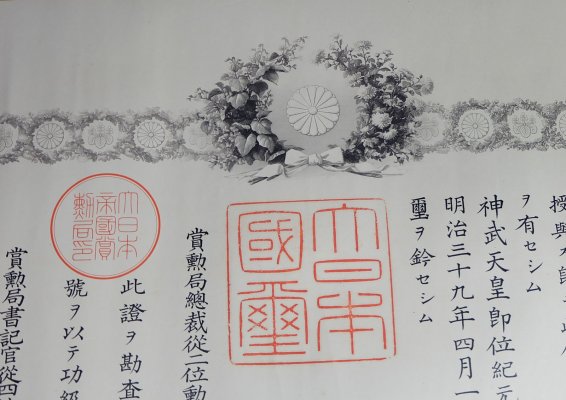 授與
ヲ有セシム
神武天皇卽位紀元
明治三十九年四月一
璽ヲ鈐セシム
大日本
國璽
賞勲局總裁從二位勲
此證ヲ勘査
號ヲ以テ功級
大日本
帝國賞
勲局印
賞勲局書記官從四